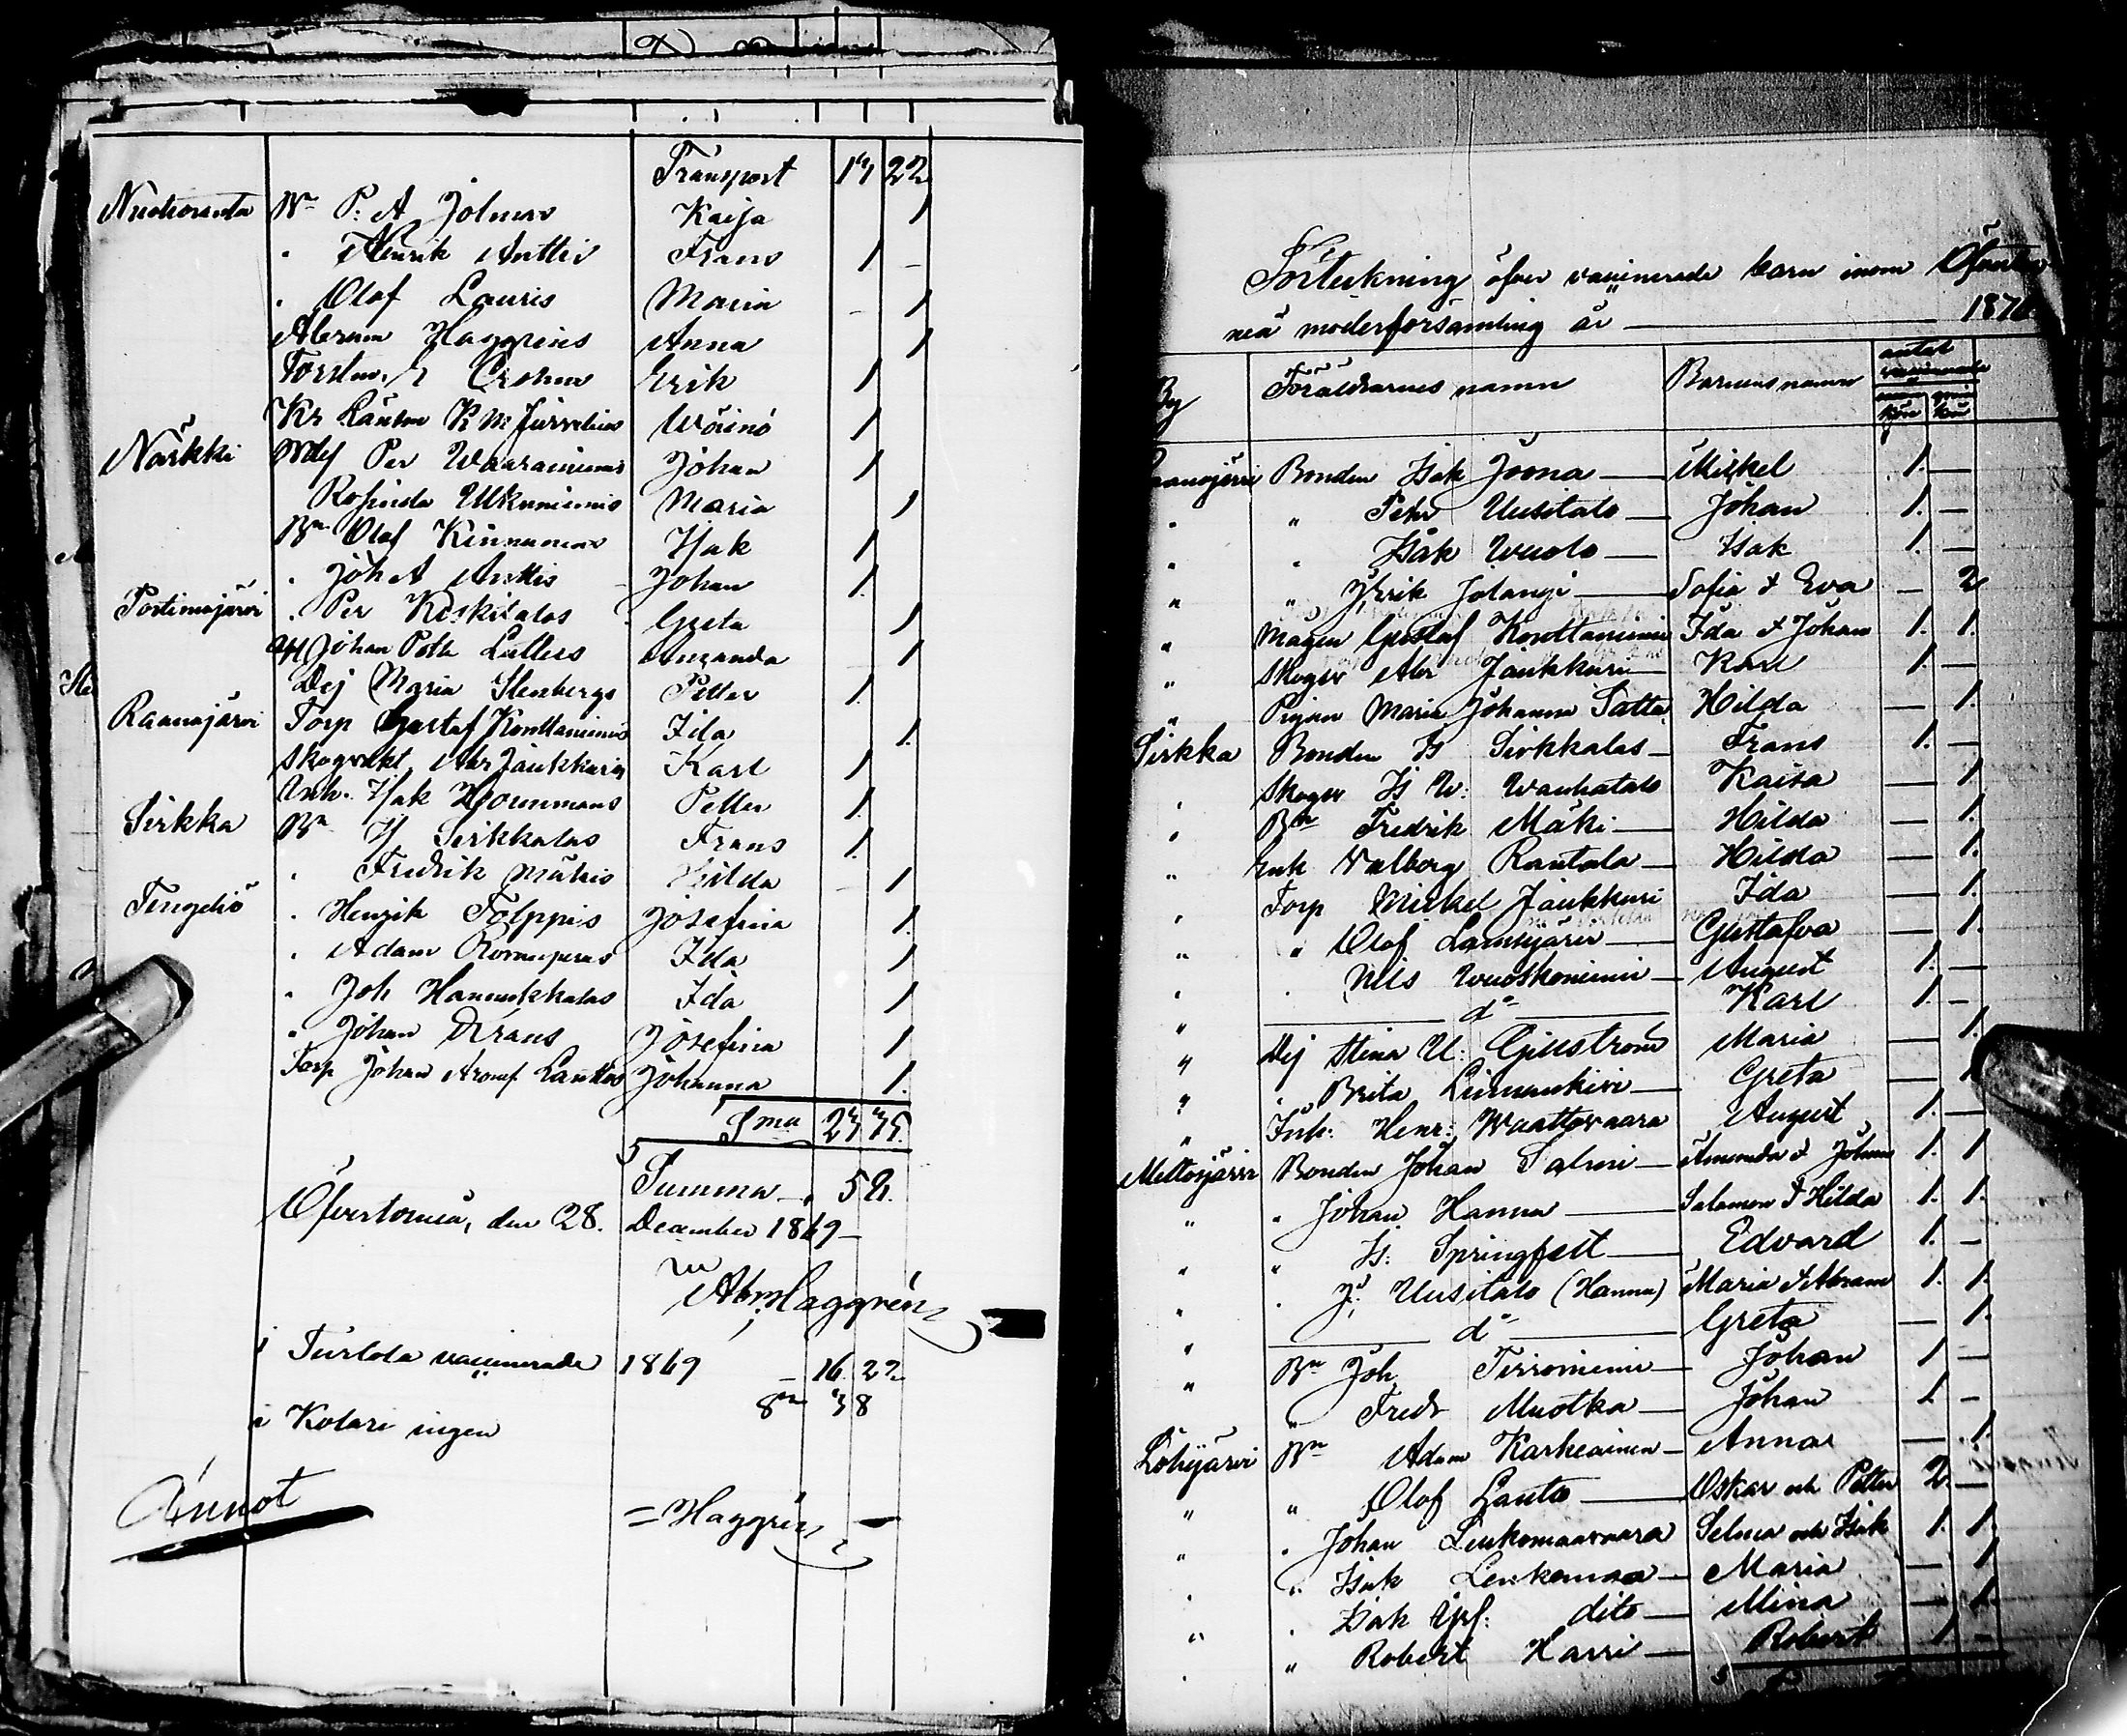 Transport 17 22
Nuotioranta Bn P. A Jolmas Kaija 1
" Henrik Anttis Frans 1 –
" Olof Lauris Maria – 1
Abram Haggrens Anna 1
Torslm. E Crohns Erik 1
Kr Läntm K M Jürvelius Wäinö 1
Närkki Mdlf Per Waaraniemis Johan 1
Rosinda Ulkuniemis Maria 1
Bn Olof Kinnunens Isak 1
" Joh A Anttis Johan 1.
Portimojärvi " Per Keskitalos Greta 1
Johan Petter Lallers Amanda 1
Dej Maria Stenbergs Petter 1.
Raanujärvi Torp Gustaf Konttaniemis Ida 1.
Skogvakt Abr Jaukkuris Karl 1
Inh. Isak Hjorunmans Petter 1.
Sirkka Bn Is Sirkkalas Frans 1.
" Fredrik Mäkis Hilda – 1
Tengeliö " Henrik Tolppis Josefina 1.
" Adam Rovanperas Ida 1
" Joh Hannukkalas Ida 1
" Johan Krans Josefina 1
Torp Johan Aronsf Lanttos Johanna 1.
Sma 27 45.
Summa 52.
Öfvertorneå, den 28. December 1869 –
Abr Haggrén
i Turtola vaccinerade 1869 – 16 22
i Kolari ingen 38
Annot = Haggrén
Förteckning öfver vaccinerade barn inom Öfvertor-
neå moderförsamling år — 1870.
By Föräldrarnes namn Barnens namn antal vaccinerade
mankön qvinkön
Raanujärvi Bonden Isak Joona — Mickel 1. —
" " Pehr Uusitalo — Johan 1. —
" " Isak Wuolo — Isak 1. —
" " Erik Jolangi — Sofia & Eva — 2
" Mågen Gustaf Konttaniemi Ida & Johan 1. 1.
" Skogsv Abr Jaukkuri — Karl 1. —
" Pigan Maria Johanna Satta Hilda — 1.
Sirkka Bonden Is Sirkkalas — Frans 1. —
" Skogsv Is W: Wanhatalo Kaisa — 1
" Bn Fredrik Mäki — Hilda — 1.
" Enk Valborg Rantala — Hilda — 1.
" Torp Mickel Jaukkuri Ida — 1.
" " Olof Lamsijärvi — Gustafva — 1.
" " Nils Wuoskoniemi — August 1. —
" — do — Karl 1. —
" Dej Stina U: Gillström Maria — 1.
" " Brita Liimankivi — Greta — 1
" Inh: Henr: Waattovaara August 1. —
Meltosjärvi Bonden Johan Salmi — Amanda & Johan 1. 1
" " Johan Hannu — Salamon & Hilda 1. 1.
" " Is: Springfelt — Edvard 1. —
" " Is: Uusitalo (Hannu) Maria & Abram 1. 1.
" — do — Greta — 1.
" Bn Joh Tirroniemi — Johan 1 —
" " Fredr Muotka — Johan 1. —
Lohijärvi Bn Adam Karkeainen — Anna — 1.
" " Olof Lanto — Oskar och Petter 2. —
" " Johan Leukomaavaara Selma och Isak 1. 1.
" " Isak Leukumaa — Maria — 1
" " Isak Ipf: dito — Mina — 1.
" " Robert Harri — Robert 1 —